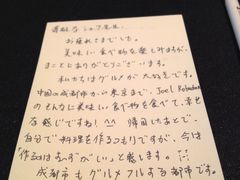 尊敬なシェフ先生、
お疲れさまでした。
美味しい食べ物を楽しみますが、
まことにありがとうございます。
私たちはグルメが大好きです。
中国の成都市から東京まで、Joel Robuchon
のそんなに美味しい食べ物を食べて、幸せ
な感じですね! ^^ 帰国したあとで、
自分で料理を作るつもりですが、今は
「作るはむずがしい」と感じます。
成都市もグルメフルする都市です。